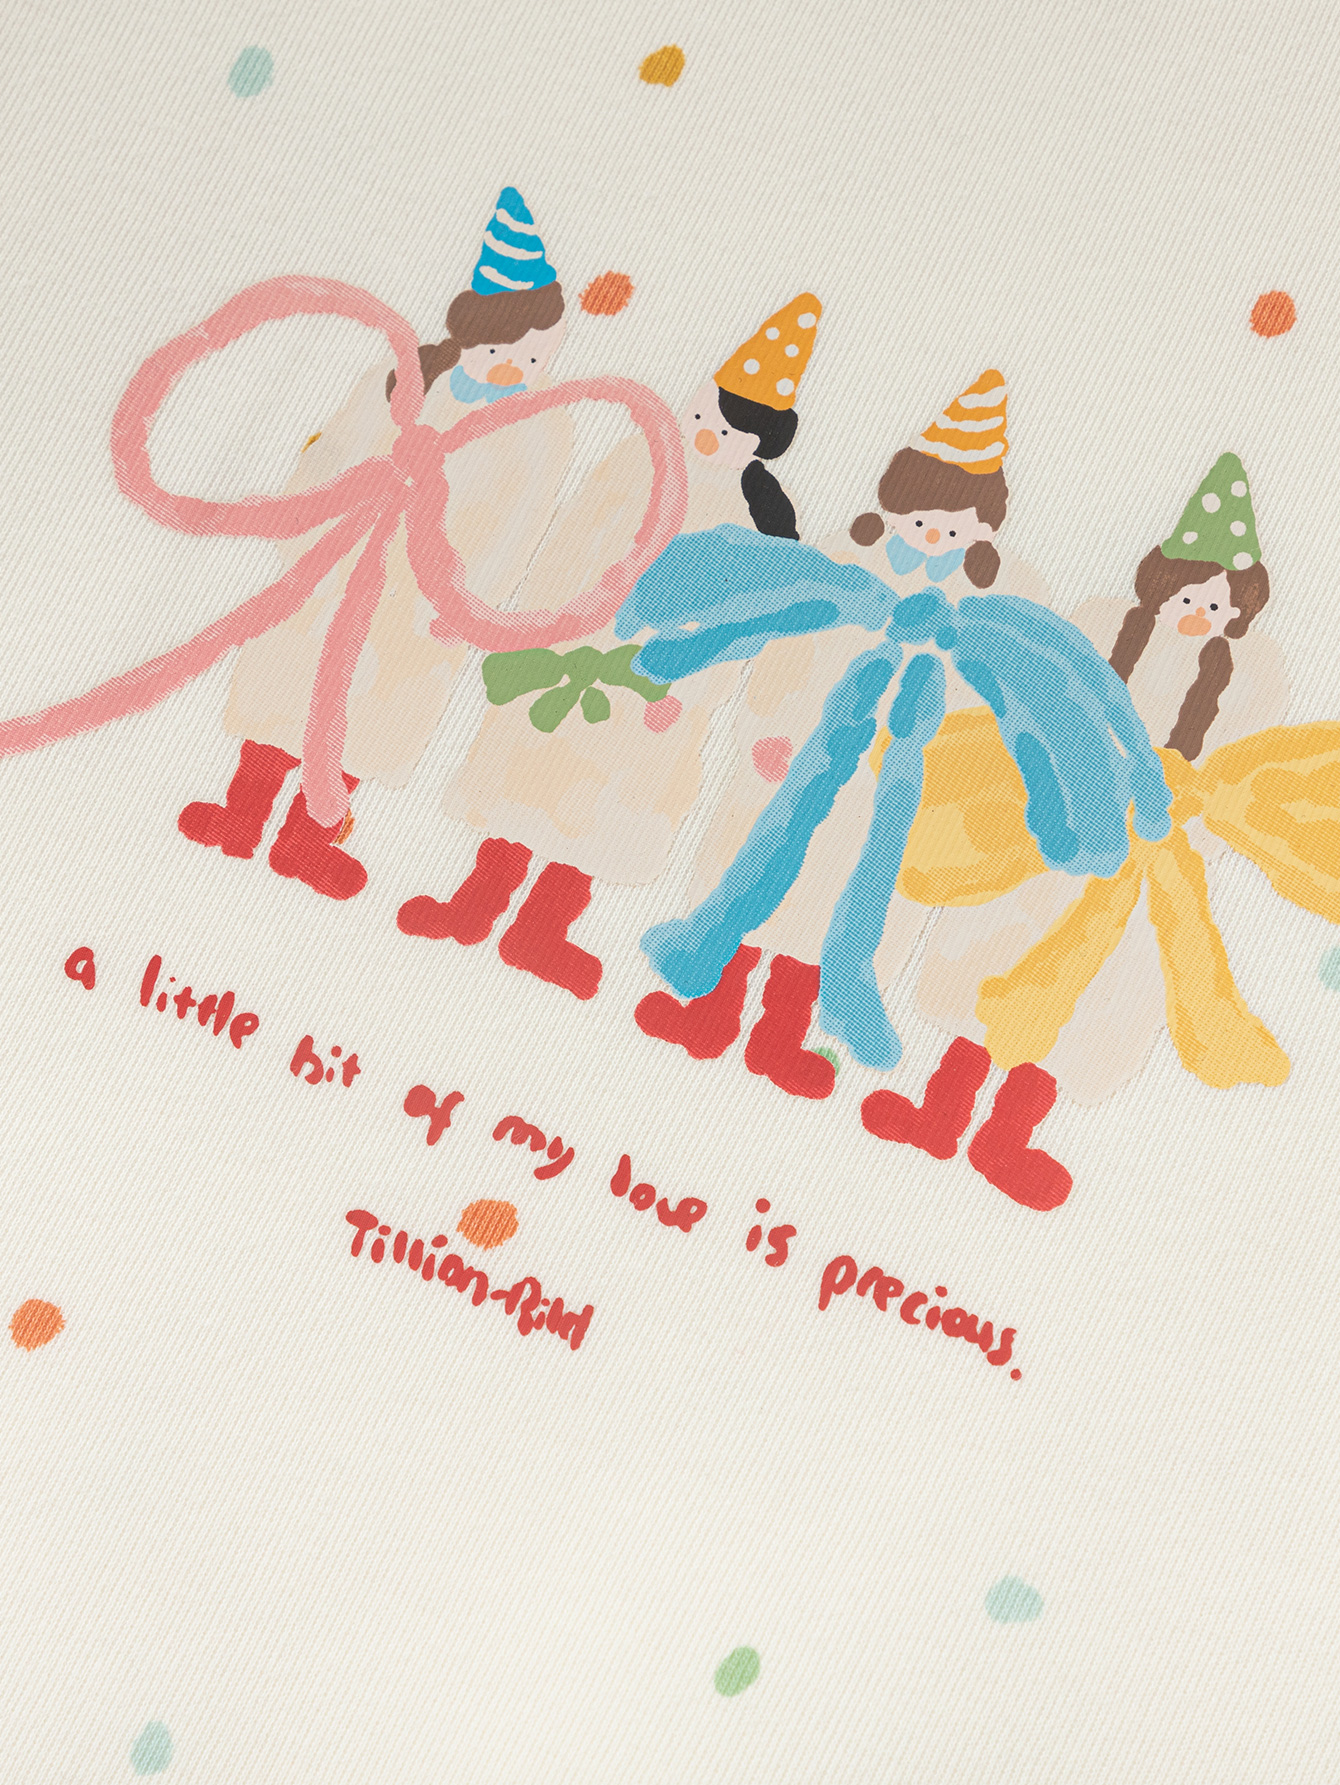 a little bit of my love is precious.
Tillian-Rild